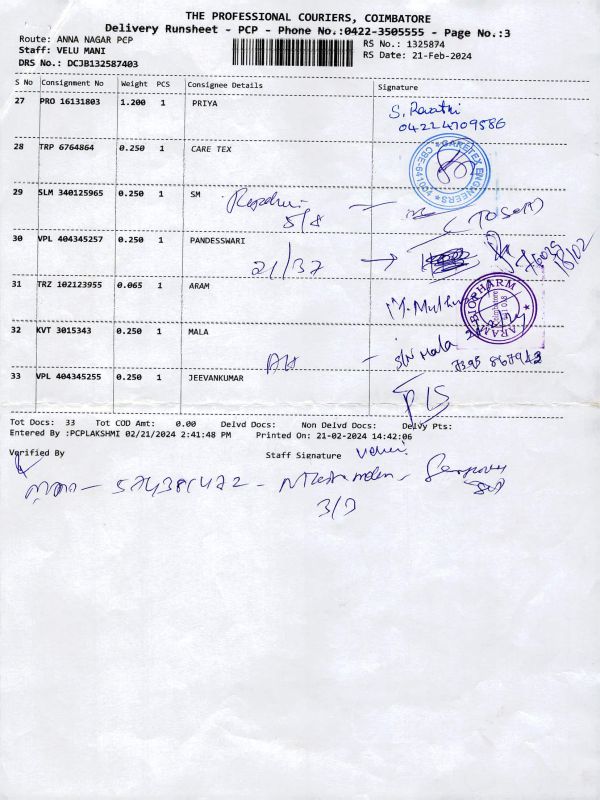 THE PROFESSIONAL COURIERS, COIMBATORE
Delivery Runsheet - PCP - Phone No.:0422-3505555 - Page No.:3
Route: ANNA NAGAR PCP
Staff: VELU MANI
DRS No.: DCJB132587403
RS No.: 1325874
RS Date: 21-Feb-2024
S No Consignment No Weight PCS Consignee Details Signature
27 PRO 16131803 1.200 1 PRIYA
04224709586
28 TRP 6764864 0.250 1 CARE TEX
29 SLM 340125965 0.250 1 SM
5/8
30 VPL 404345257 0.250 1 PANDESSWARI
21/37
31 TRZ 102123955 0.065 1 ARAM
ARAM BIOPHARM
32 KVT 3015343 0.250 1 MALA
Mala
33 VPL 404345255 0.250 1 JEEVANKUMAR
Tot Docs: 33 Tot COD Amt: 0.00 Delvd Docs: Non Delvd Docs: Delvy Pts:
Entered By :PCPLAKSHMI 02/21/2024 2:41:48 PM Printed On: 21-02-2024 14:42:06
Verified By Staff Signature